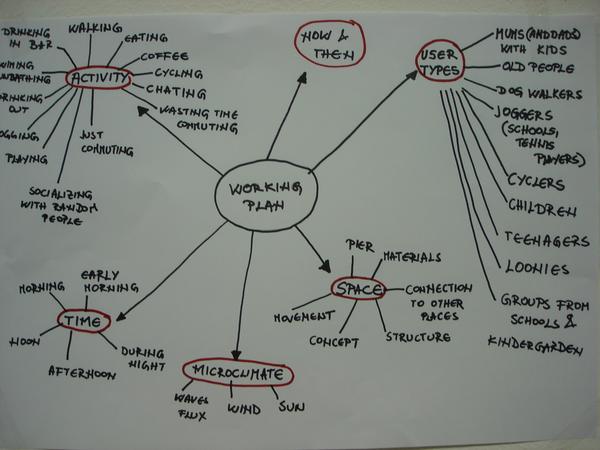 DRINKING
IN BAR
WALKING
EATING
COFFEE
CYCLING
CHATING
WASTING TIME
COMMUTING
JUST
COMMUTING
SOCIALIZING
WITH RANDOM
PEOPLE
PLAYING
OGGING
DRINKING
OUT
UNBATHING
WIMING
ACTIVITY
NOW &
THEN
USER
TYPES
MUMS (AND DADS)
WITH KIDS
OLD PEOPLE
DOG WALKERS
JOGGERS
(SCHOOLS,
TENNIS
PLAYERS)
CYCLERS
CHILDREN
TEENAGERS
LOONIES
GROUPS FROM
SCHOOLS &
KINDERGARDEN
WORKING
PLAN
PIER
MATERIALS
SPACE
CONNECTION
TO OTHER
PLACES
STRUCTURE
CONCEPT
MOVEMENT
MORNING
EARLY
MORNING
TIME
NOON
AFTERNOON
DURING
NIGHT
MICROCLIMATE
WAVEL
FLUX
WIND
SUN